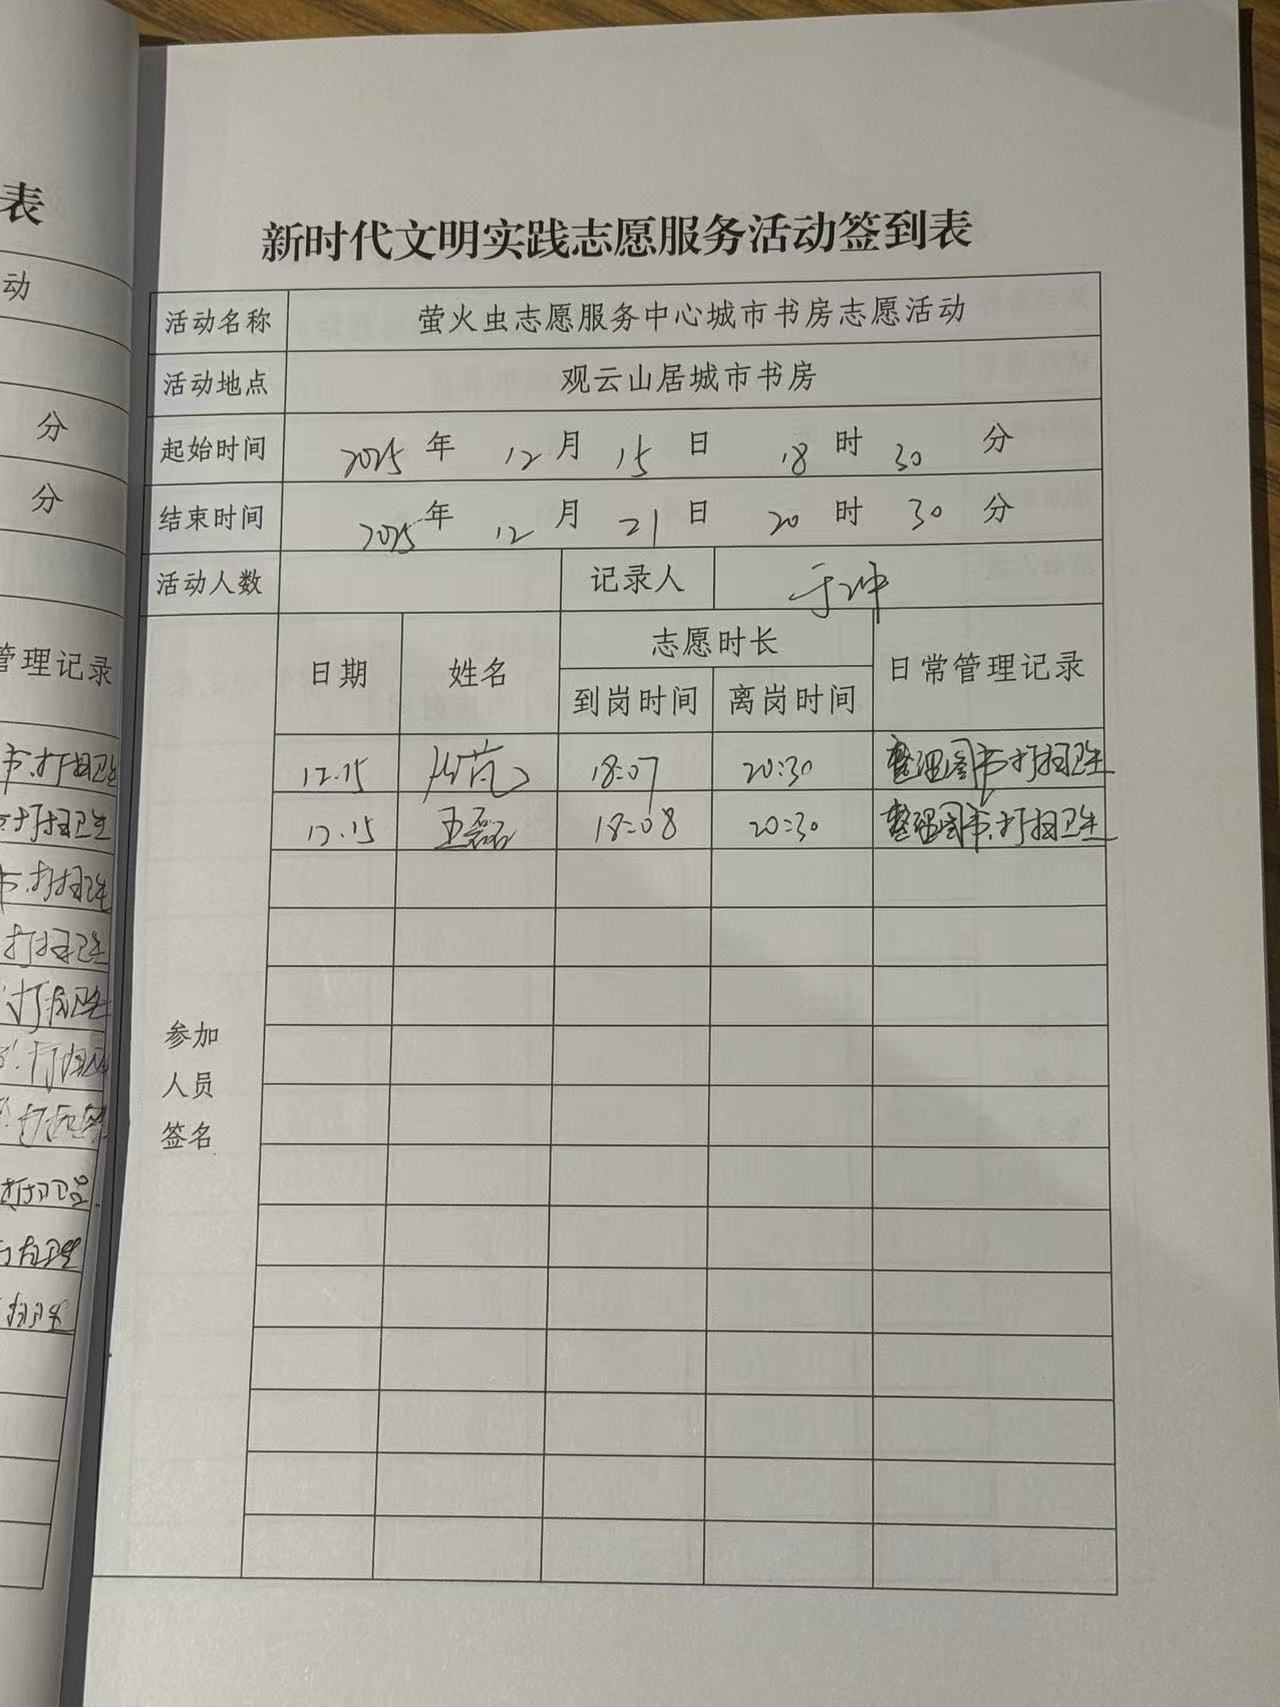 表
动
分
分
管理记录
书.打扫卫生
打扫卫生
书.打扫卫生
打扫卫生
打扫卫生
打扫卫生
打扫卫生
新时代文明实践志愿服务活动签到表
活动名称 萤火虫志愿服务中心城市书房志愿活动
活动地点 观云山居城市书房
起始时间 2025 年 12 月 15 日 18 时 30 分
结束时间 2025 年 12 月 21 日 20 时 30 分
活动人数 记录人 于冲
日期 姓名 志愿时长 日常管理记录
到岗时间 离岗时间
12.15 18:07 20:30 整理图书.打扫卫生
12.15 王磊 18:08 20:30 整理图书.打扫卫生
参加
人员
签名